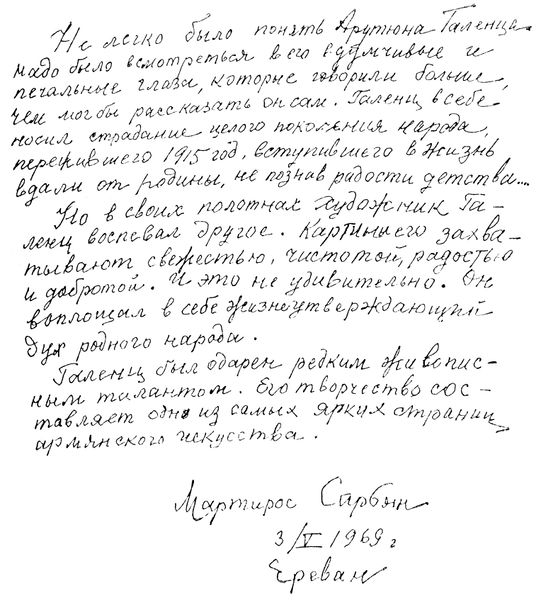 Не легко было понять Арутюна Галенца.
надо было всмотреться в его вдумчивые и
печальные глаза, которые говорили больше,
чем мог бы рассказать он сам. Галенц в себе
носил страдание целого поколения народа,
пережившего 1915 год, вступившего в жизнь
вдали от родины, не познав радости детства....
Но в своих полотнах художник Га-
ленц воспевал другое. Картины его захва-
тывают свежестью, чистотой, радостью
и добротой. И это не удивительно. Он
воплощал в себе жизнеутверждающий
дух родного народа.
Галенц был одарен редким живопис-
ным талантом. Его творчество сос-
тавляет одно из самых ярких страниц
армянского искусства.
Мартирос Сарьян
3/V 1969 г
Ереван